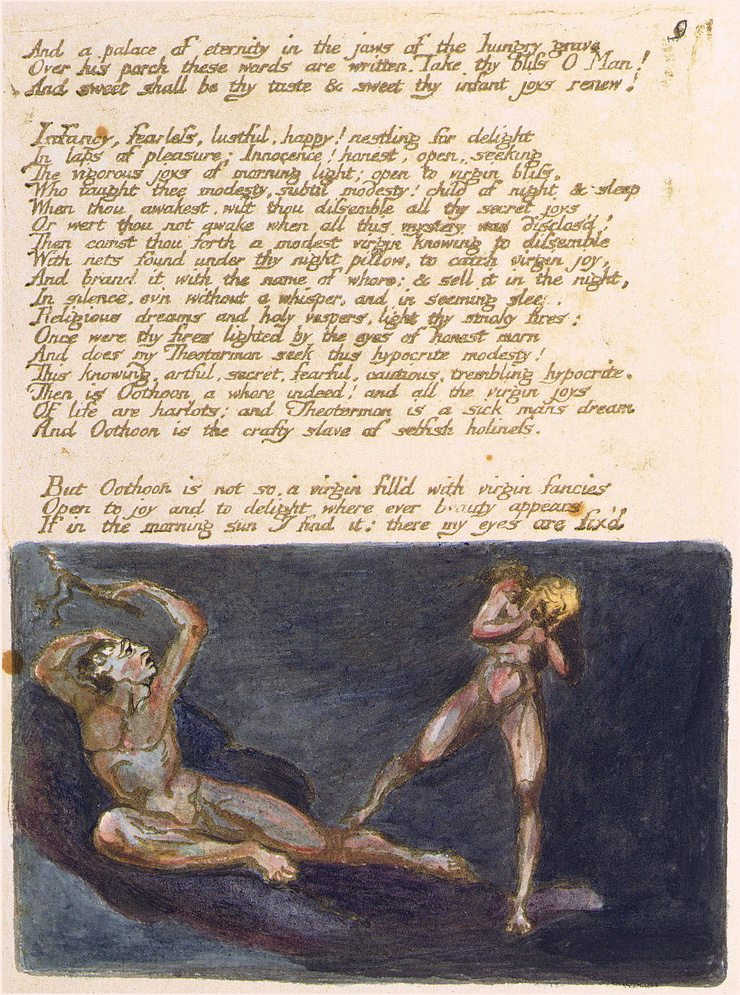 9
And a palace of eternity in the jaws of the hungry grave
Over his porch these words are written. Take thy bliss O Man!
And sweet shall be thy taste & sweet thy infant joys renew!
Infancy, fearless, lustful, happy! nestling for delight
In laps of pleasure; Innocence! honest, open, seeking
The vigorous joys of morning light; open to virgin bliss,
Who taught thee modesty, subtil modesty! child of night & sleep
When thou awakest, wilt thou dissemble all thy secret joys
Or wert thou not awake when all this mystery was disclos'd!
Then com'st thou forth a modest virgin knowing to dissemble
With nets found under thy night pillow, to catch virgin joy,
And brand it with the name of whore; & sell it in the night,
In silence, ev'n without a whisper, and in seeming
Religious dreams and holy vespers, light thy smoky fires:
Once were thy fires lighted by the eyes of honest morn
And does my Theotormon seek this hypocrite modesty!
This knowing, artful, secret, fearful, cautious, trembling hypocrite.
Then is Oothoon a whore indeed! and all the virgin joys
Of life are harlots; and Theotormon is a sick mans dream
And Oothoon is the crafty slave of selfish holiness.
But Oothoon is not so, a virgin fill'd with virgin fancies
Open to joy and to delight where ever beauty appears
If in the morning sun I find it: there my eyes are fix'd